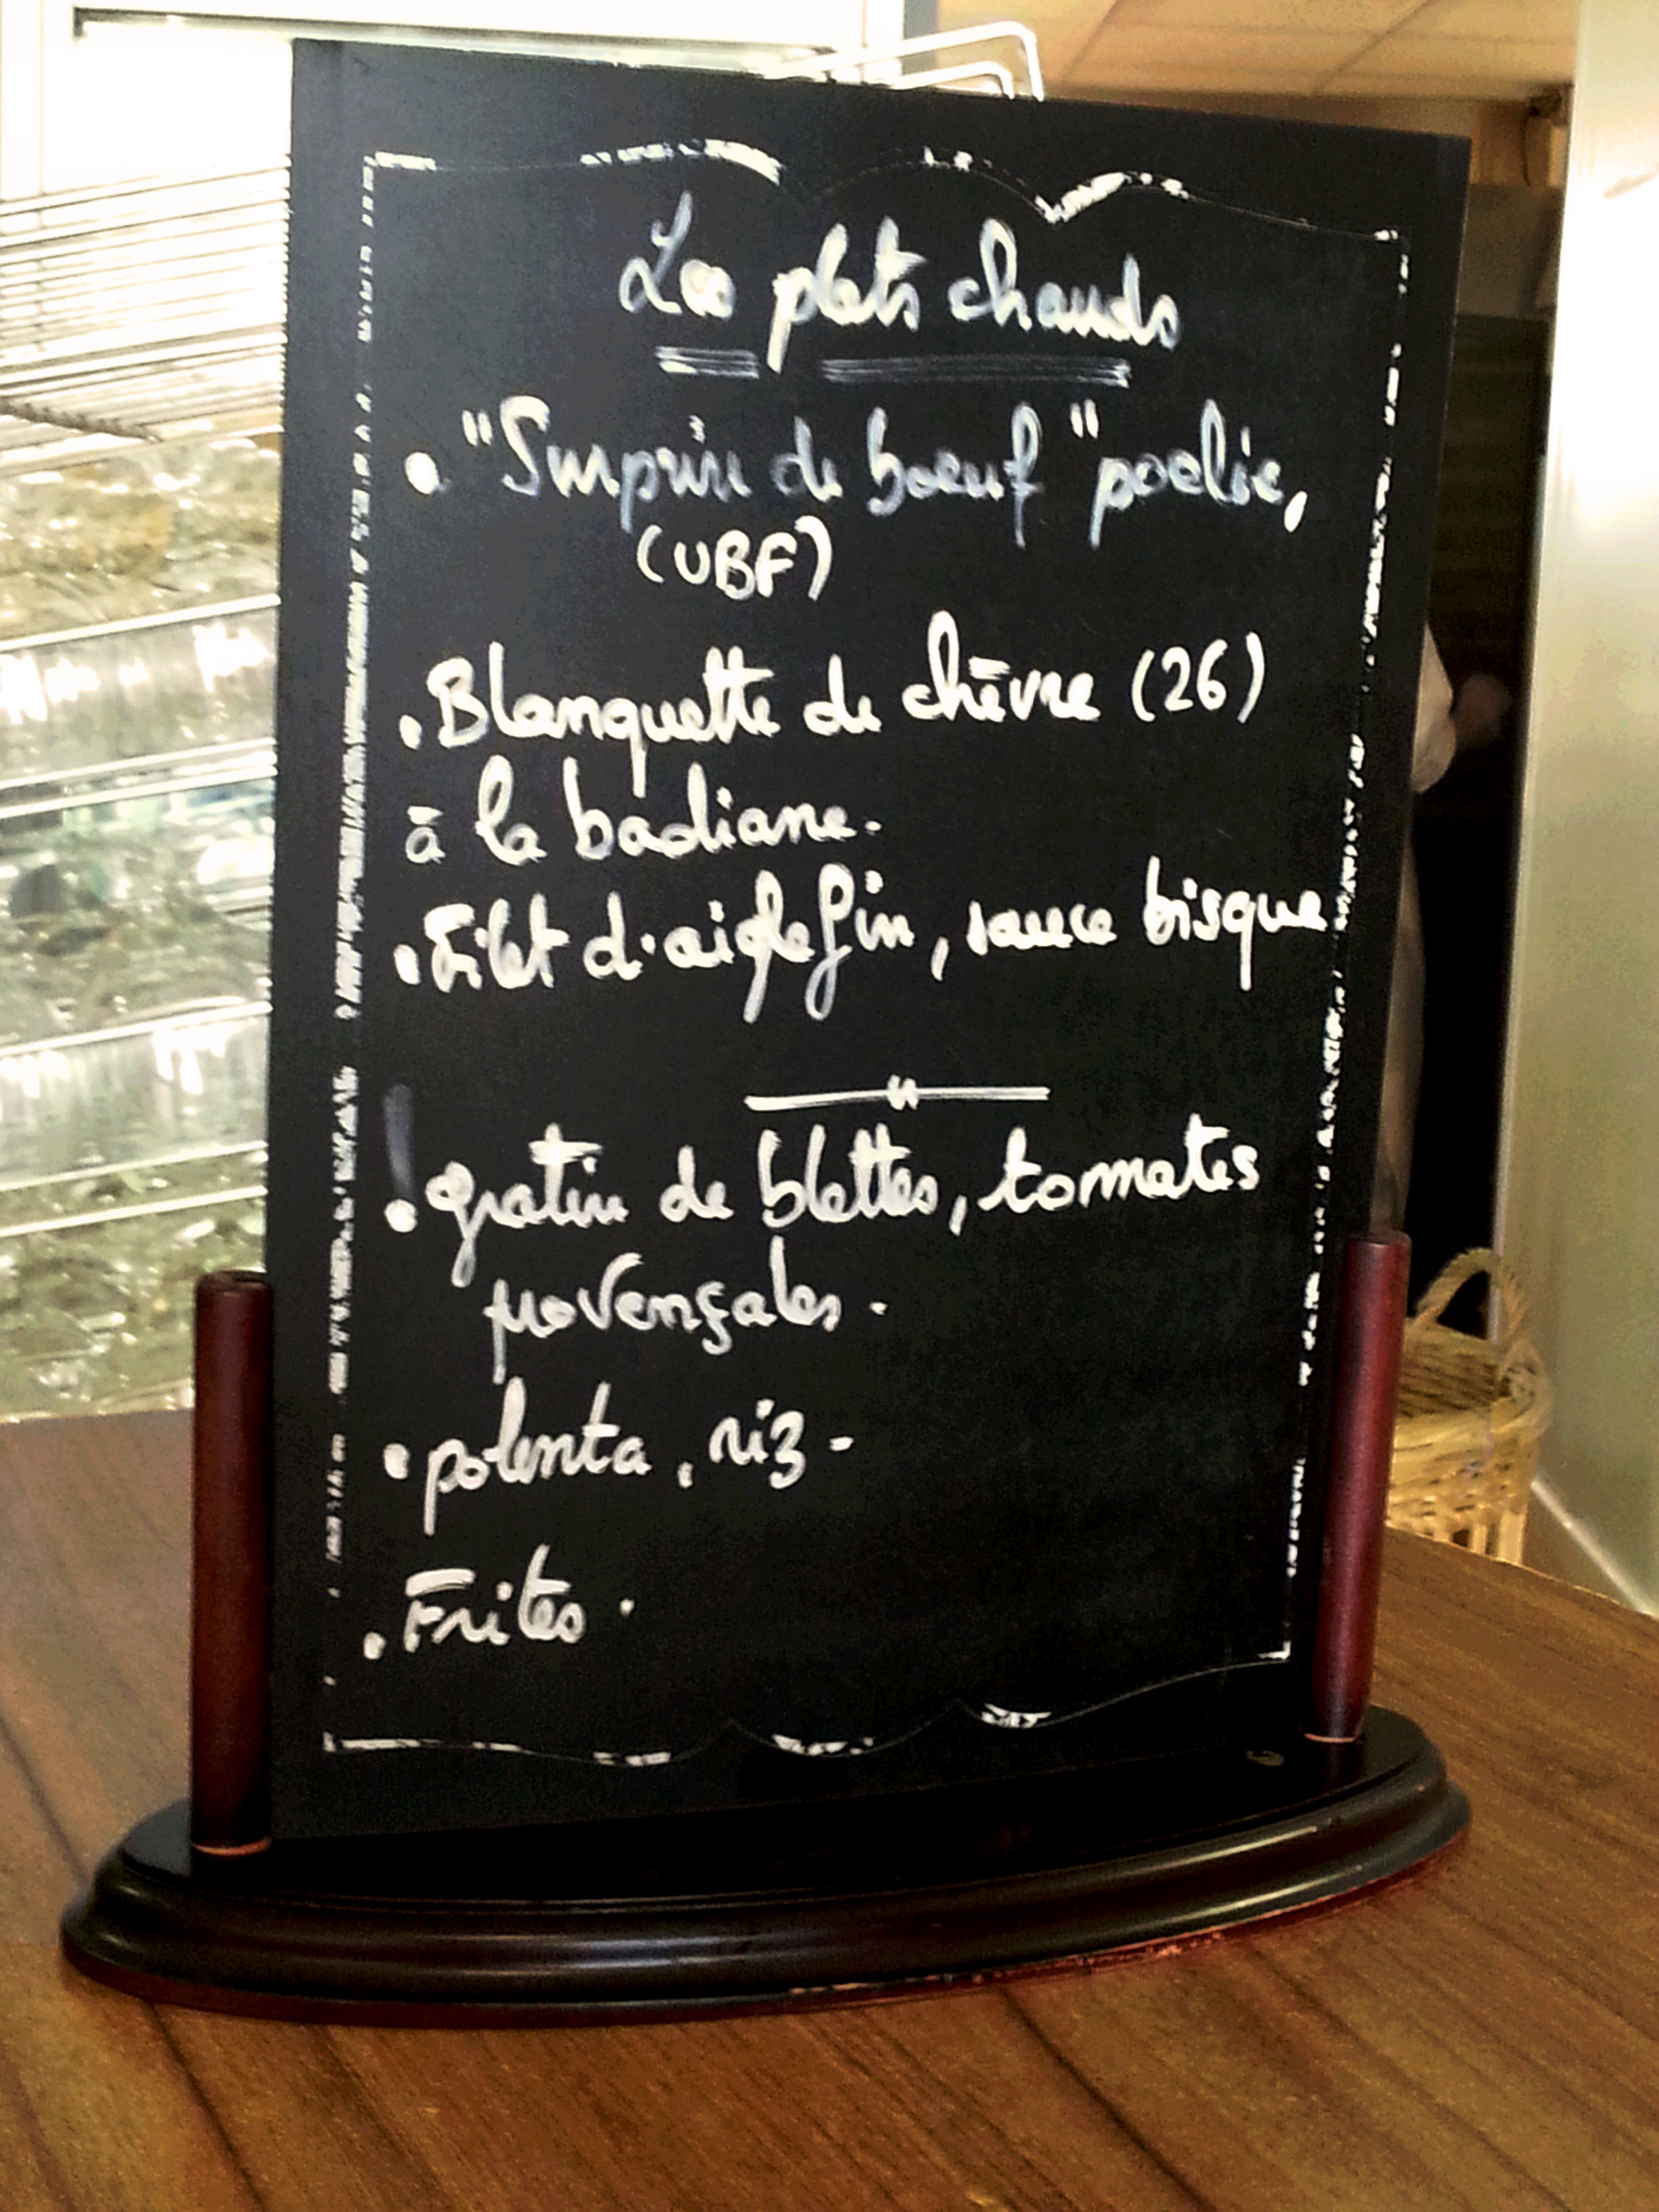 Les plats chauds
• "Surprise de boeuf" poelée,
(UBF)
• Blanquette de chèvre (26)
à la badiane.
• Filet d'aiglefin, sauce bisque
• gratin de blettes, tomates
provençales.
• polenta, riz -
• Frites.